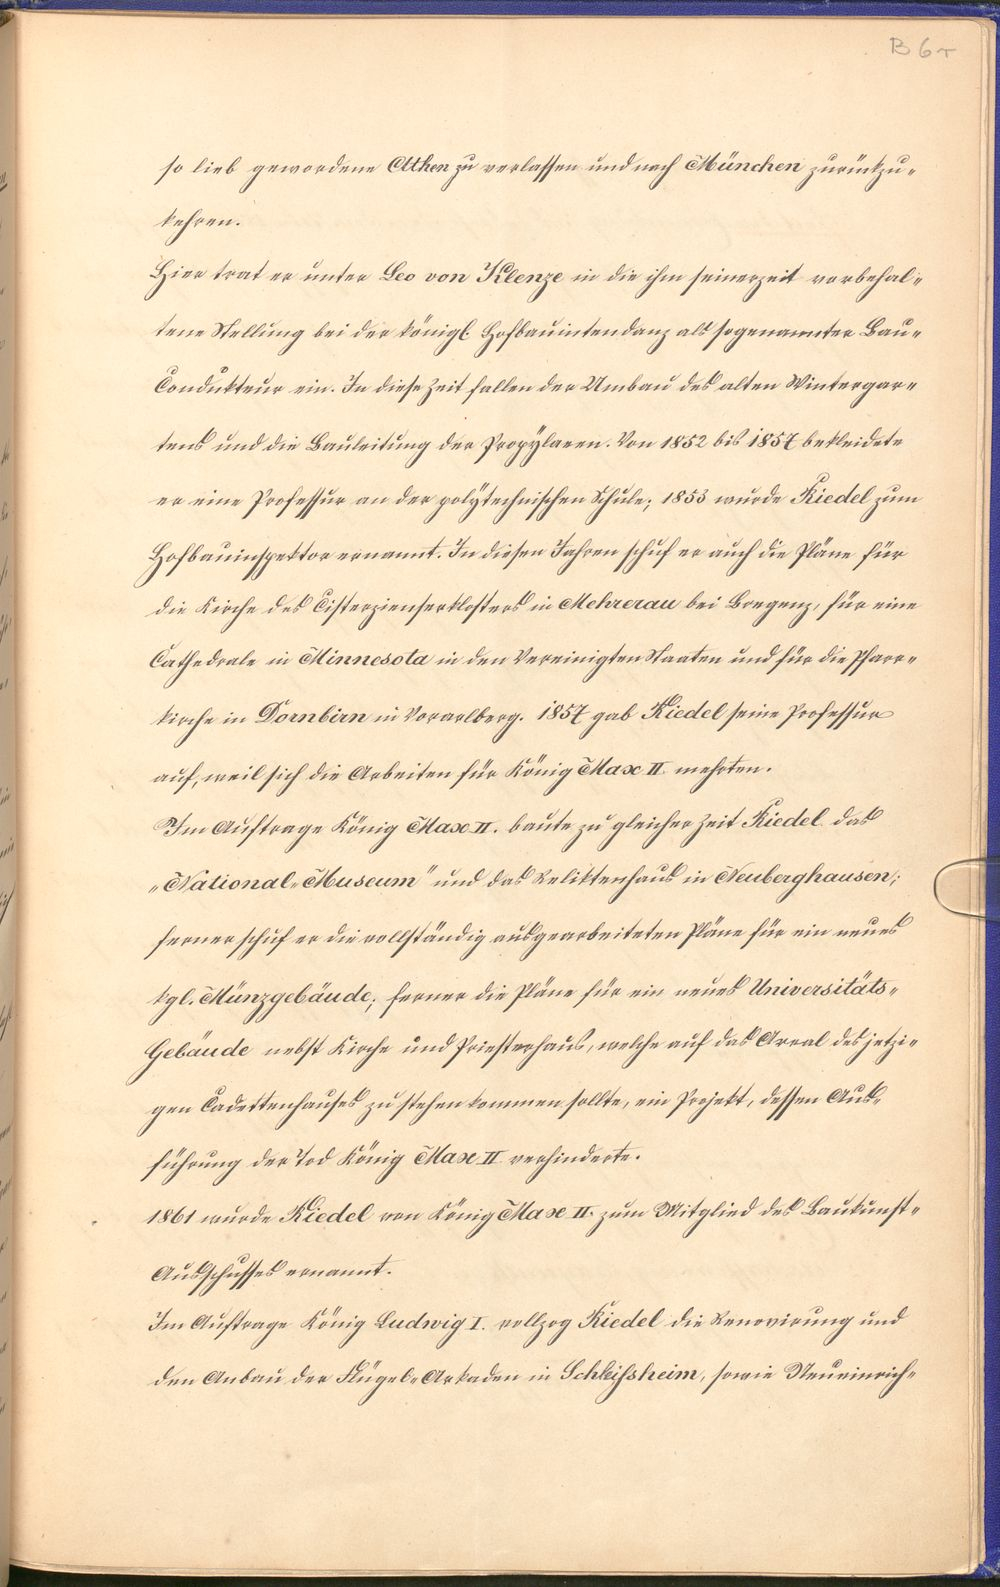 B 6r
so lieb gewordene Athen zu verlassen und nach München zurückzu-
kehren.
Hier trat er unter Leo von Klenze in die ihm seinerzeit vorbehal-
tene Stellung bei der königl. Hofbauintendanz als sogenannter Bau-
Condukteur ein. In diese Zeit fallen der Umbau des alten Wintergar-
tens und die Bauleitung der Propÿlaeen. Von 1852 bis 1857 bekleidete
er eine Professur an der polÿtechnischen Schule; 1853 wurde Riedel zum
Hofbauinspektor ernannt. In diesen Jahren schuf er auch die Pläne für
die Kirche des Cisterzienserklosters in Mehrerau bei Bregenz, für eine
Cathedrale in Minnesota in den Vereinigten Staaten und für die Pfarr-
kirche in Dornbirn in Vorarlberg. 1857 gab Riedel seine Professur
auf, weil sich die Arbeiten für König Max II. mehrten.
Im Auftrage König Max II. baute zu gleicher Zeit Riedel das
„National-Museum" und das Reliktenhaus in Neuberghausen;
ferner schuf er die vollständig ausgearbeiteten Pläne für ein neues
kgl. Münzgebäude; ferner die Pläne für ein neues Universitäts-
Gebäude nebst Kirche und Priesterhaus, welche auf das Areal des jetzi-
gen Cadettenhauses zu stehen kommen sollte, ein Projekt, dessen Aus-
führung der Tod König Max II. verhinderte.
1861 wurde Riedel von König Max II. zum Mitglied des Baukunst-
Ausschusses ernannt.
Im Auftrage König Ludwig I. vollzog Riedel die Renovirung und
den Anbau der Flügel-Arkaden in Schleißheim, sowie Neueinrich-